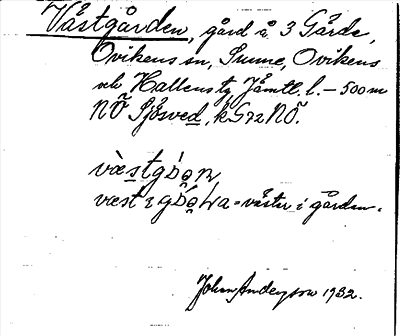 Västgården, gård å 3 Gärde,
Ovikens sn, Sunne, Ovikens
och Hallens tg, Jämtl. l. – 500 m
NÖ Sjösved, k.G72NÖ.
= väster i gården.
Johan Anderson 1932.